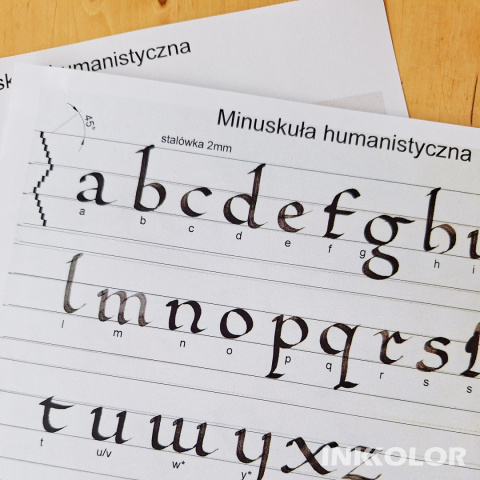 humanistyczna
Minuskuła humanistyczna
45°
stalówka 2mm
a b c d e f g h
a b c d e f g h i
l m n o p q r s
l m n o p q r s s
t u w y x z
t u/v w* y*
INKKOLOR